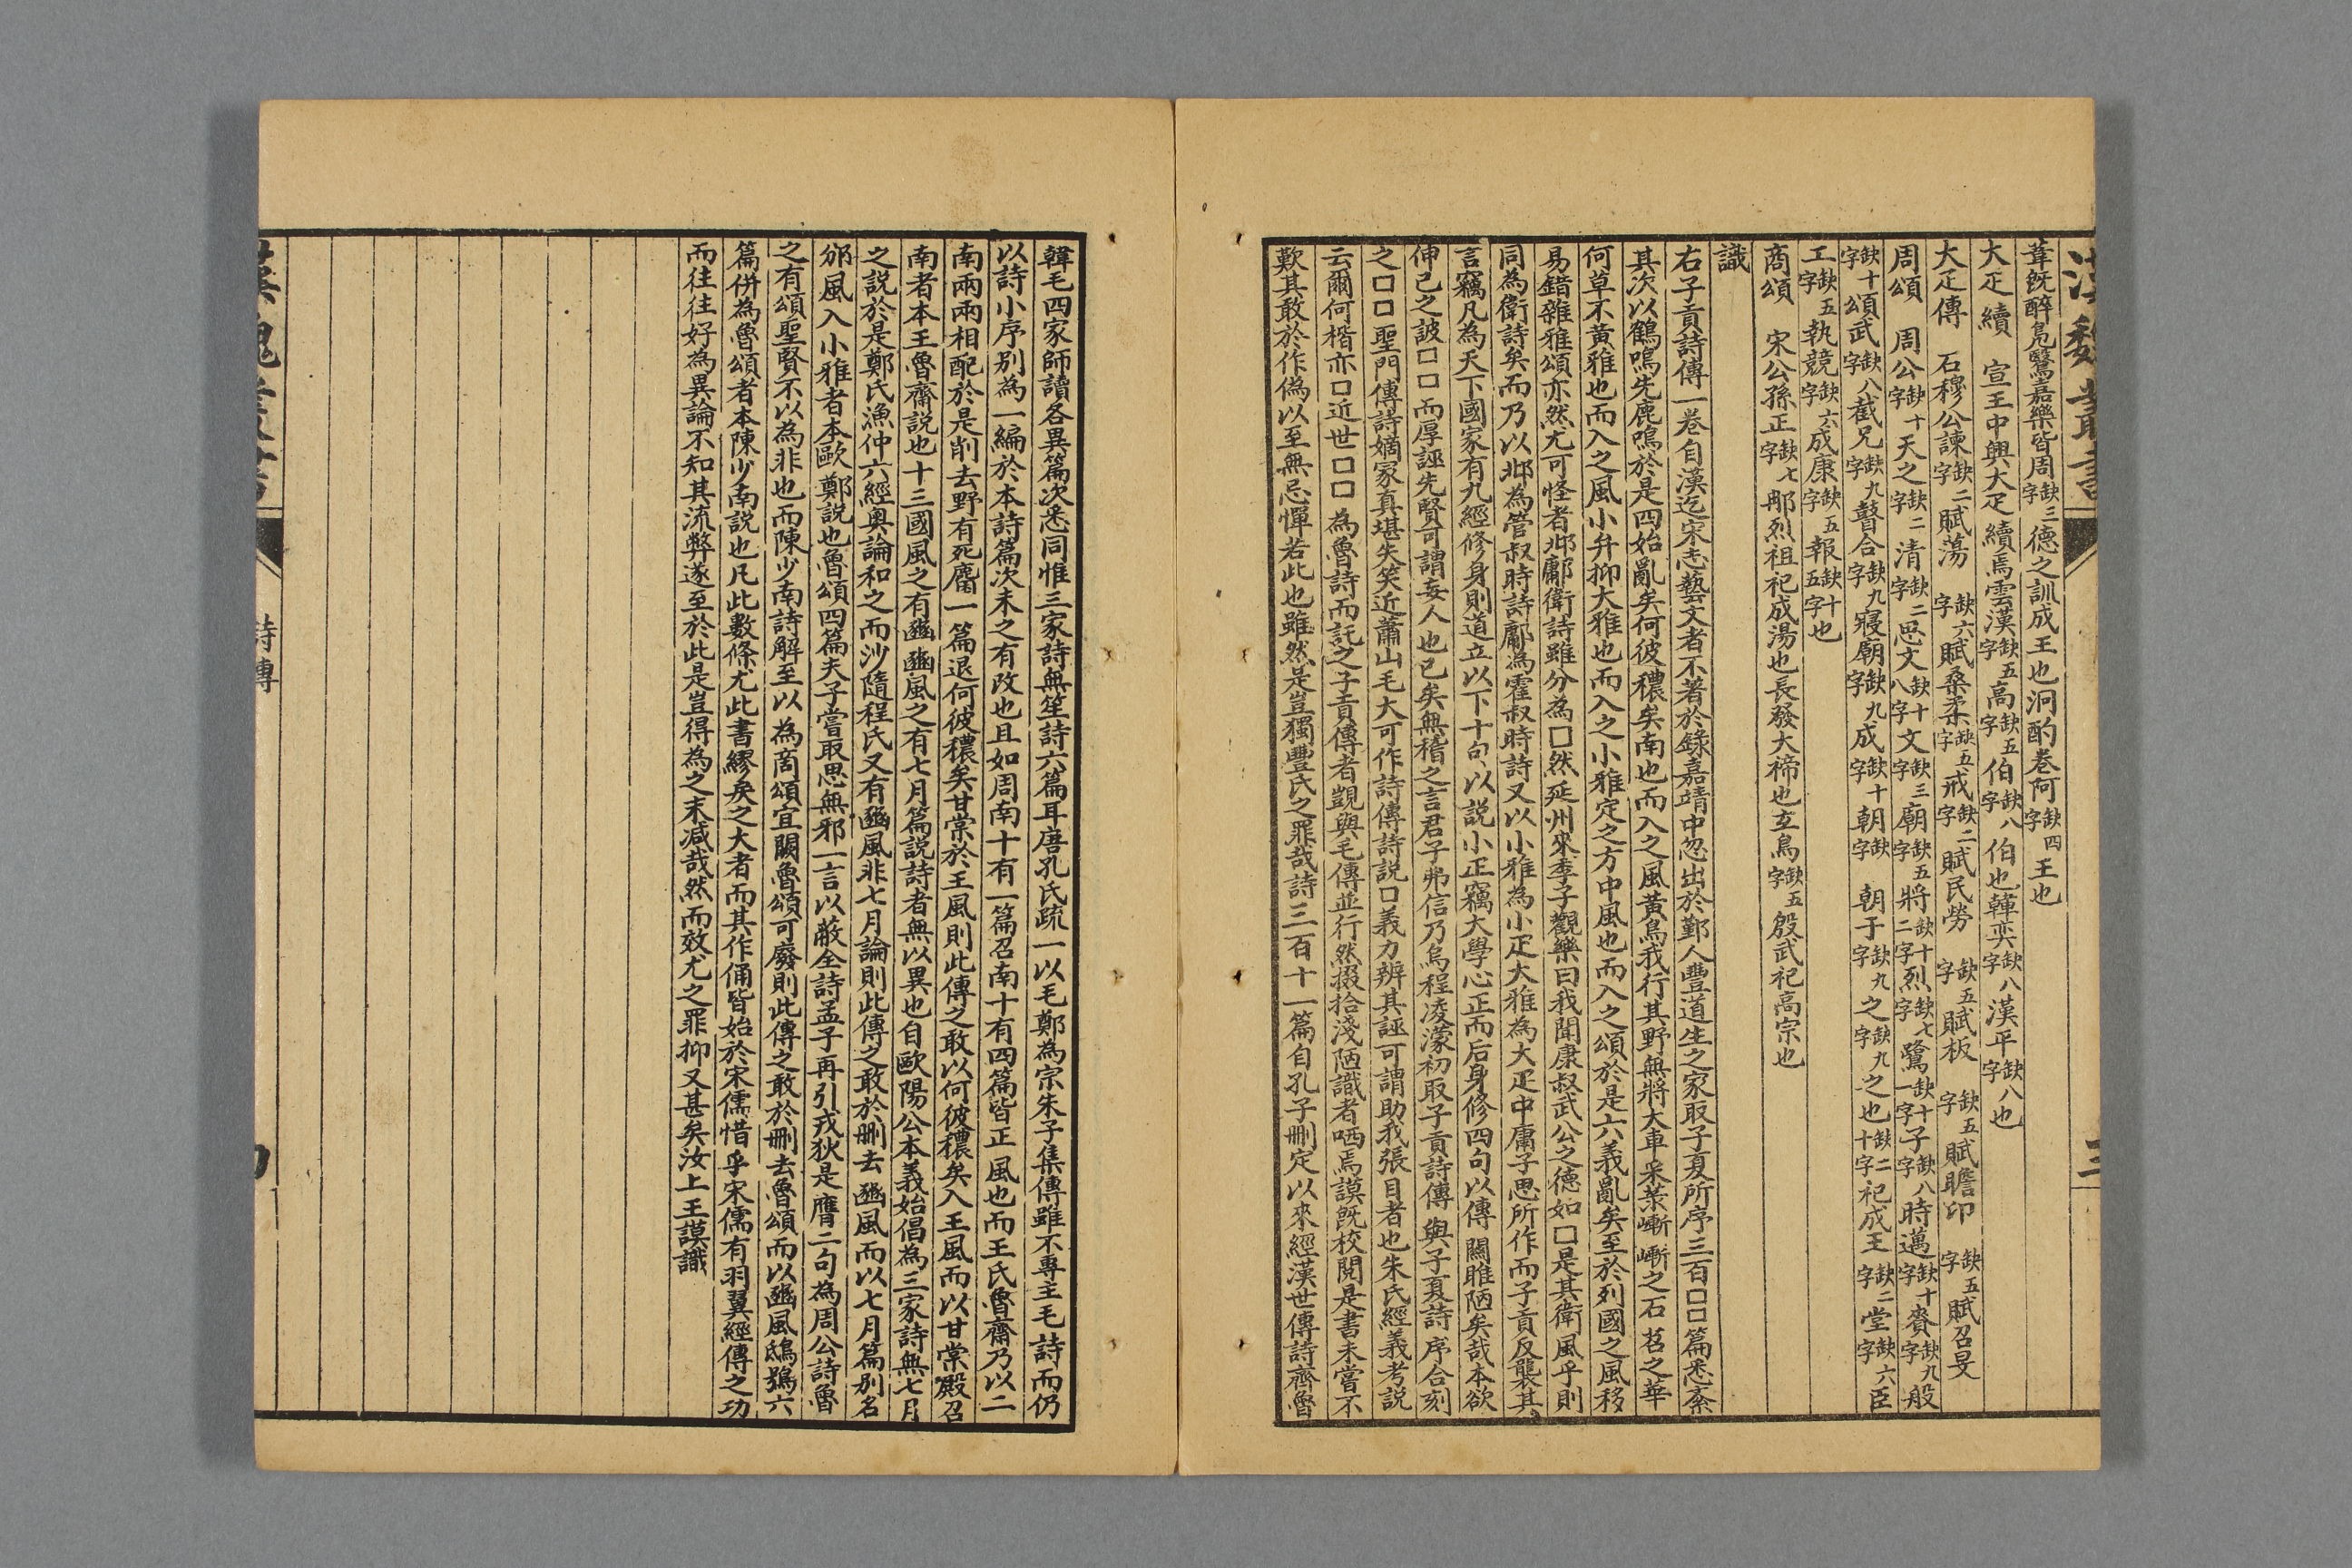 漢魏叢書
三
葦旣醉鳧鷖嘉樂皆周缺三字德之訓成王也泂酌卷阿缺四字王也
大疋續　宣王中興大疋續焉雲漢缺五字高缺五字伯缺八字伯也韓奕缺八字漢平缺八字也
大疋傳　石穆公諫缺二字賦蕩缺六字賦桑柔缺五字戒缺二字賦民勞缺五字賦板缺五字賦瞻卬缺五字賦召旻
周頌　周公缺十字天之缺二字清缺二字思文缺十八字文缺三字廟缺五字將缺十二字烈缺七字鷺缺十一字子缺八字時邁缺十字賚缺九字般
缺十字頌武缺八字載兄缺九字瞽合缺九字寢廟缺九字成缺十字朝缺字　朝于缺九字之缺九字之也缺二十字祀成王缺二字堂缺六字臣
工缺五字執競缺六字成康缺五字報缺十五字也
商頌　宋公孫正缺七字那烈祖祀成湯也長發大禘也玄鳥缺五字殷武祀高宗也
識
右子貢詩傳一卷自漢迄宋志藝文者不著於錄嘉靖中忽出於鄞人豐道生之家取子夏所序三百□□篇悉紊
其次以鶴鳴先鹿鳴於是四始亂矣何彼穠矣南也而入之風黃鳥我行其野無將大車采菽嶄嶄之石苕之華
何草不黃雅也而入之風小弁抑大雅也而入之小雅定之方中風也而入之頌於是六義亂矣至於列國之風移
易錯雜雅頌亦然尤可怪者邶鄘衛詩雖分為□然延州來季子觀樂曰我聞康叔武公之德如□是其衛風乎則
同為衛詩矣而乃以邶為管叔時詩鄘為霍叔時詩又以小雅為小疋大雅為大疋中庸子思所作而子貢反襲其
言竊凡為天下國家有九經修身則道立以下十句以說小正竊大學心正而后身修四句以傳關雎陋矣哉本欲
伸己之詖□□而厚誣先賢可謂妄人也已矣無稽之言君子弗信乃烏程凌濛初取子貢詩傳與子夏詩序合刻
之□□聖門傳詩嫡家真堪失笑近蕭山毛大可作詩傳詩說□義力辨其誣可謂助我張目者也朱氏經義考說
云爾何楷亦□近世□□為魯詩而託之子貢傳者覬與毛傳並行然掇拾淺陋識者哂焉謨旣校閱是書未嘗不
歎其敢於作偽以至無忌憚若此也雖然是豈獨豐氏之罪哉詩三百十一篇自孔子刪定以來經漢世傳詩齊魯
韓毛四家師讀各異篇次悉同惟三家詩無笙詩六篇耳唐孔氏疏一以毛鄭為宗朱子集傳雖不專主毛詩而仍
以詩小序別為一編於本詩篇次未之有改也且如周南十有一篇召南十有四篇皆正風也而王氏魯齋乃以二
南兩兩相配於是削去野有死麕一篇退何彼穠矣甘棠於王風則此傳之敢以何彼穠矣入王風而以甘棠殿召
南者本王魯齋說也十三國風之有豳豳風之有七月篇說詩者無以異也自歐陽公本義始倡為三家詩無七月
之說於是鄭氏漁仲六經奧論和之而沙隨程氏又有豳風非七月論則此傳之敢於刪去豳風而以七月篇別名
邠風入小雅者本歐鄭說也魯頌四篇夫子嘗取思無邪一言以蔽全詩孟子再引戎狄是膺二句為周公詩魯
之有頌聖賢不以為非也而陳少南詩解至以為商頌宜闕魯頌可廢則此傳之敢於刪去魯頌而以豳風鴟鴞六
篇併為魯頌者本陳少南說也凡此數條尤此書繆戾之大者而其作俑皆始於宋儒惜乎宋儒有羽翼經傳之功
而往往好為異論不知其流弊遂至於此是豈得為之末減哉然而效尤之罪抑又甚矣汝上王謨識
詩傳